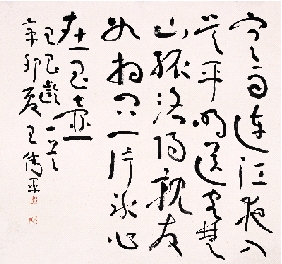 寒雨連江夜入
吳平明送客楚
山孤洛陽親友
如相問一片冰心
在玉壺
王昌齡一首
辛卯夏王偉平